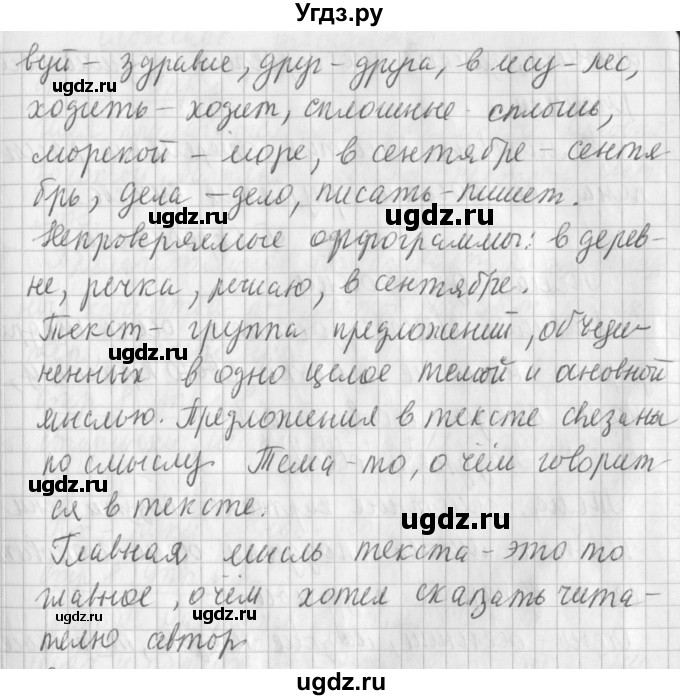 Угдз.ру
вуй – здравие, друг – друга, в лесу – лес,
ходить – ходит, сплошные - сплошь,
морской – море, в сентябре – сентя-
брь, дела – дело, писать – пишет.
Непроверяемые орфограммы: в дерев-
не, речка, решаю, в сентябре.
Текст – группа предложений, объеди-
ненных в одно целое темой и основной
мыслью. Предложения в тексте связаны
по смыслу. Тема – то, о чём говорит-
ся в тексте.
Главная мысль текста – это то
главное, о чём хотел сказать чита-
телю автор
ugdz.ru
ugdz.ru
ugdz.ru
ugdz.ru
ugdz.ru
ugdz.ru
ugdz.ru
ugdz.ru
ugdz.ru
ugdz.ru